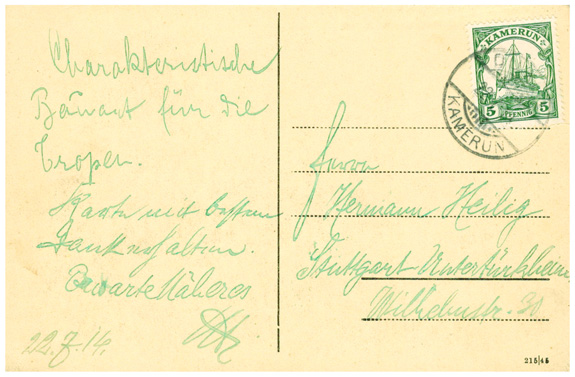 Charakteristische
Bauart für die
Tropen.
Karte mit bestem
Dank erhalten.
Erwarte Näheres
22.7.14.
KAMERUN
5 PFENNIG 5
KAMERUN
Herrn
Hermann Heilig
Stuttgart-Untertürkheim
Wilhelmstr. 30
215/45